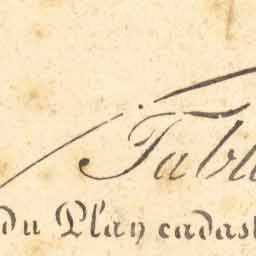 Tabl
du Plan cadast